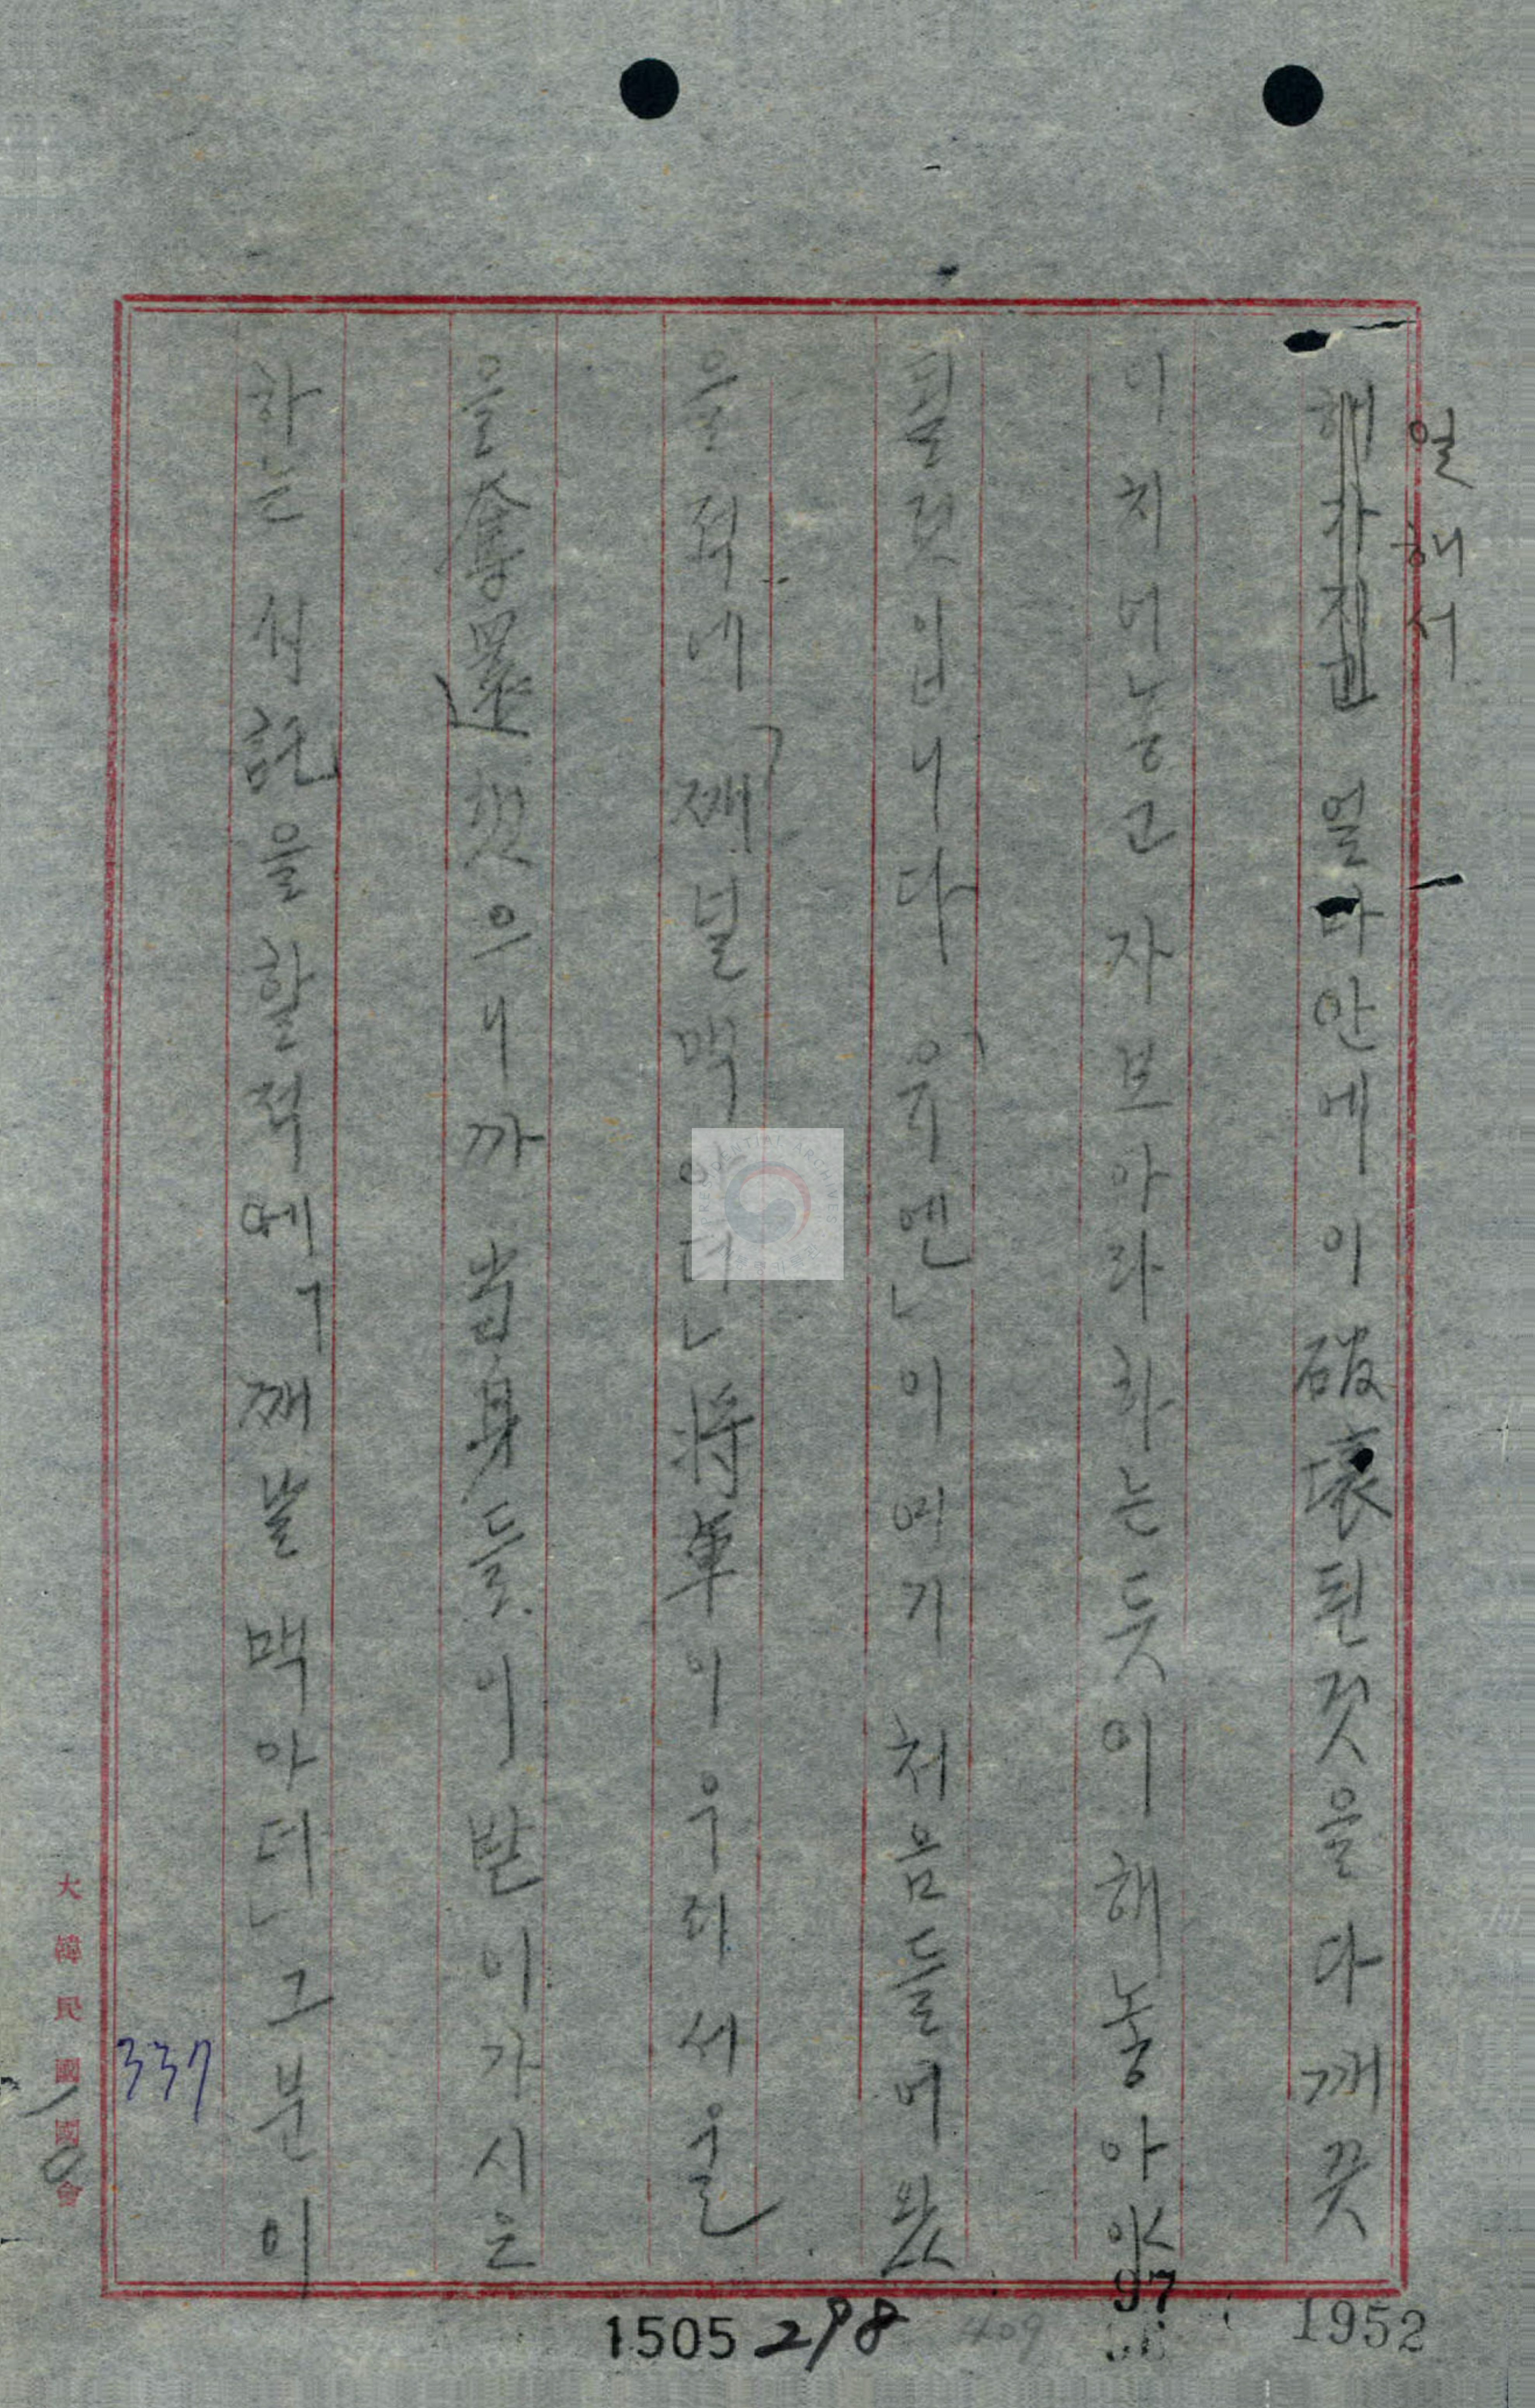 일해서
해가진 얼마안에 이 破壞된것을 다 깨끗
이 치어놓고 자브아라 하는듯이 해놓아야
될것입니다 「유엔」이 여기 처음들어왔
을적에 「쩨널 맥아더」 將軍이 우리 서울
을 奪還했으니까 當身들이 받아가시오
하는 식 을 할적에 「쩨날 맥아더」 그분이
大韓民國國會
337
1505 298 409
97
1952